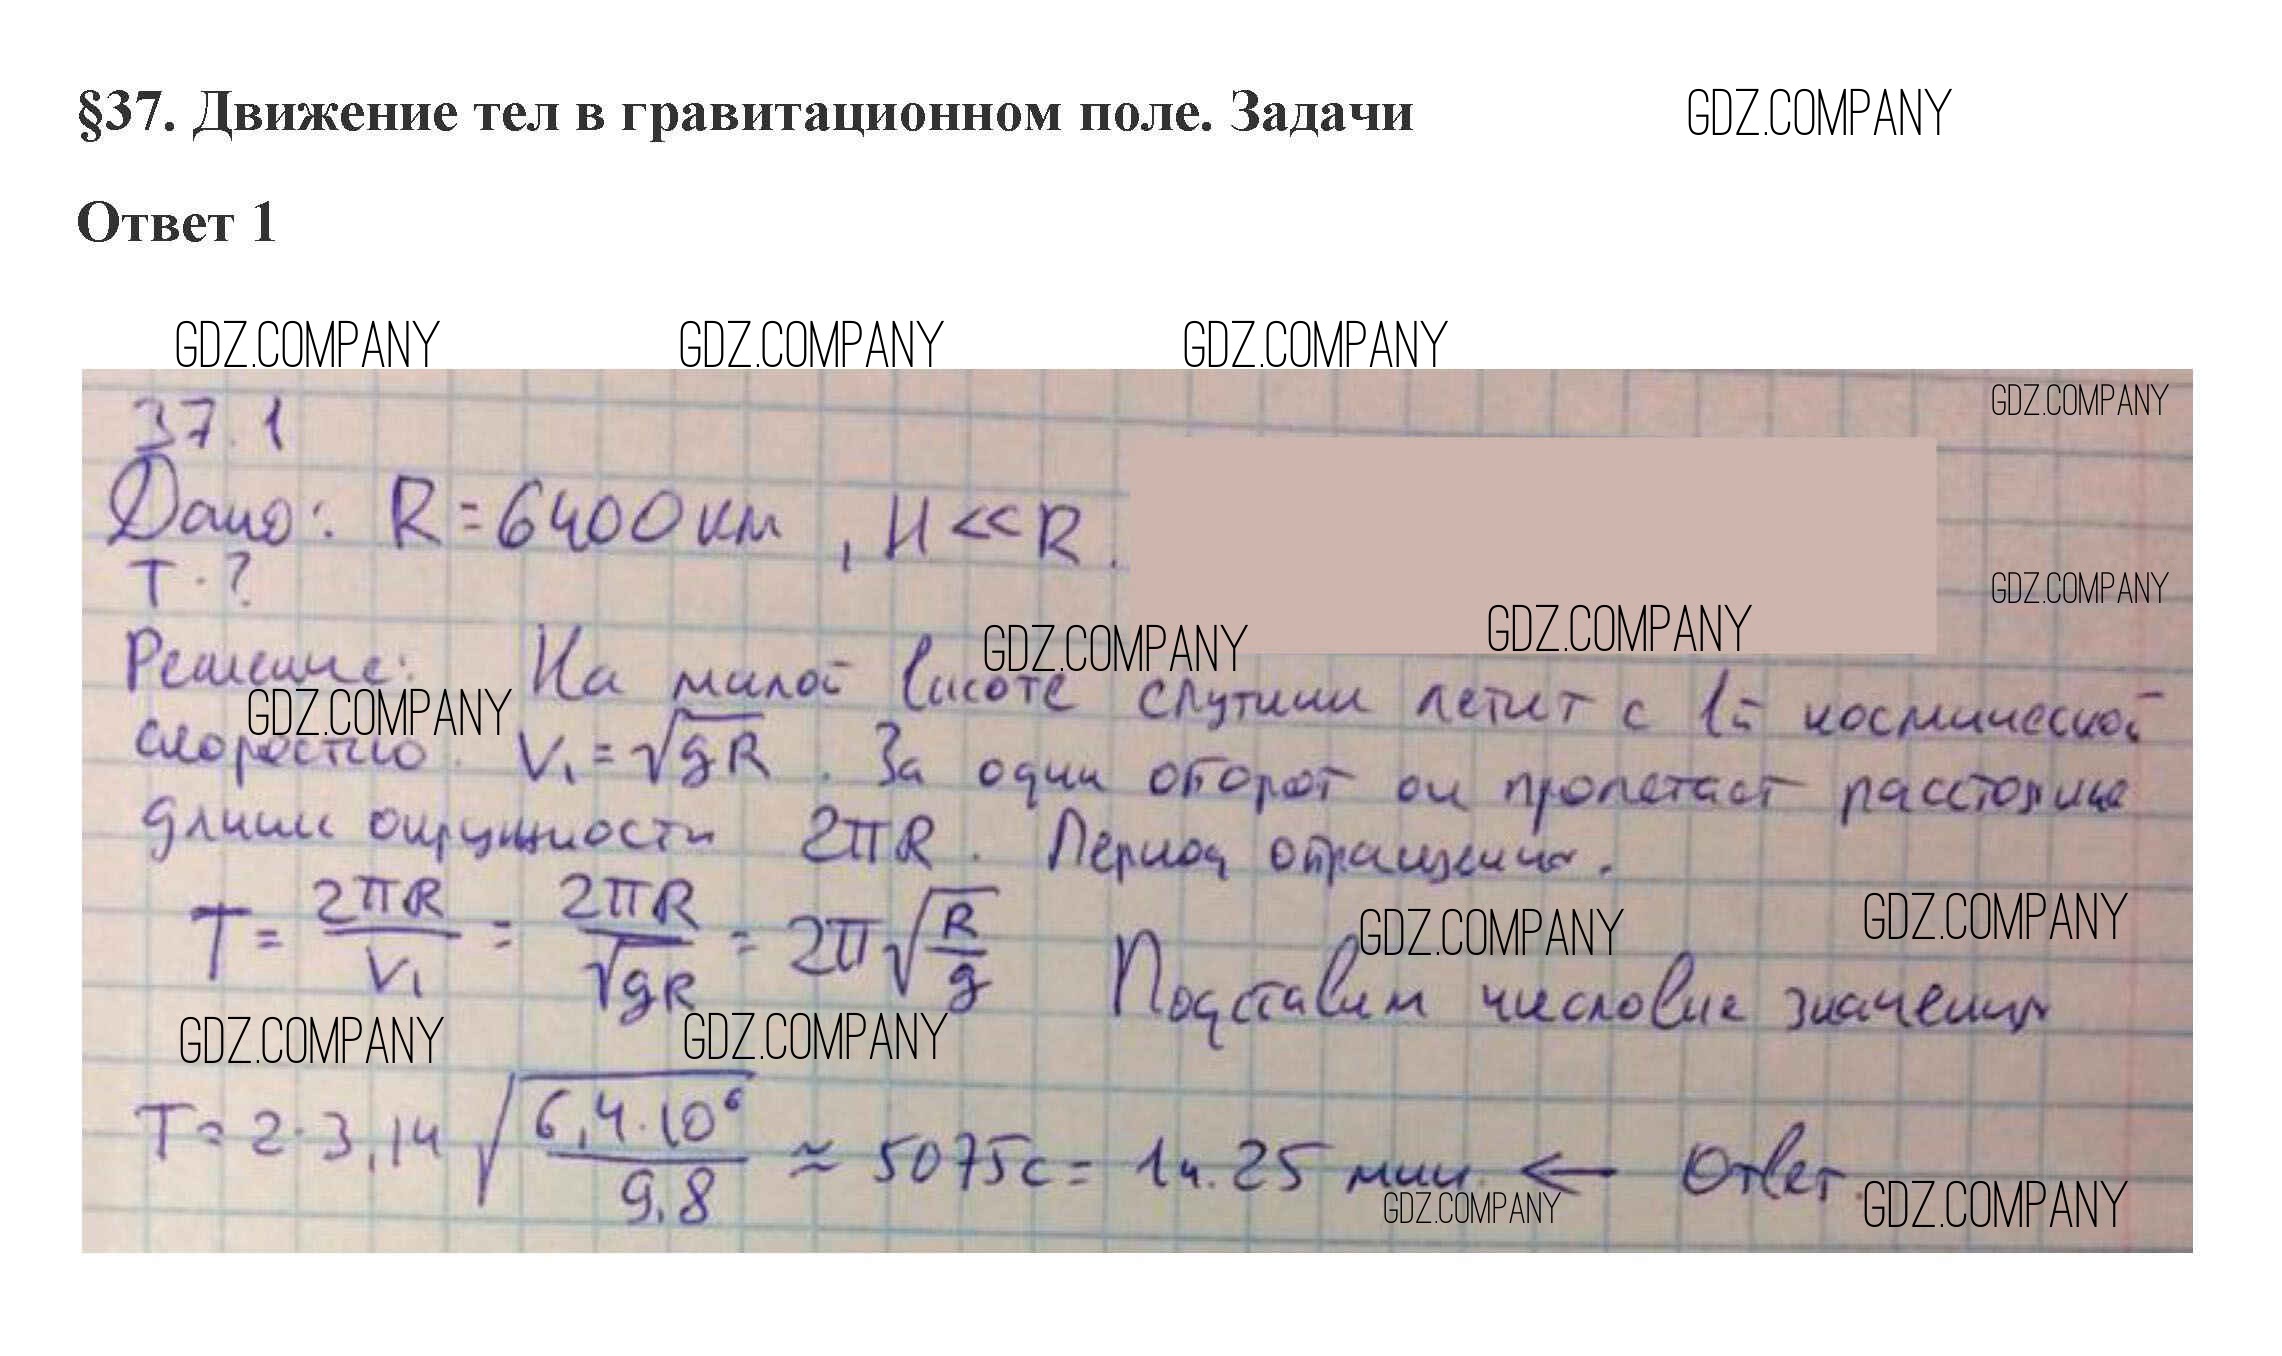 §37. Движение тел в гравитационном поле. Задачи GDZ.COMPANY
Ответ 1
GDZ.COMPANY GDZ.COMPANY GDZ.COMPANY
GDZ.COMPANY
37.1
Дано: R = 6400 км , H << R .
T - ?
GDZ.COMPANY
GDZ.COMPANY GDZ.COMPANY
Решение: На малой высоте спутник летит с 1й космической
GDZ.COMPANY
скоростью . V₁ = √gR . За один оборот он пролетает расстояние
длины окружности 2πR . Период обращения.
GDZ.COMPANY GDZ.COMPANY
T = 2πR/V₁ = 2πR/√gR = 2π√R/g Подставим числовые значения
GDZ.COMPANY GDZ.COMPANY
T = 2·3,14 √6,4·10⁶/9,8 ≈ 5075с = 1ч. 25 мин ← Ответ.
GDZ.COMPANY GDZ.COMPANY